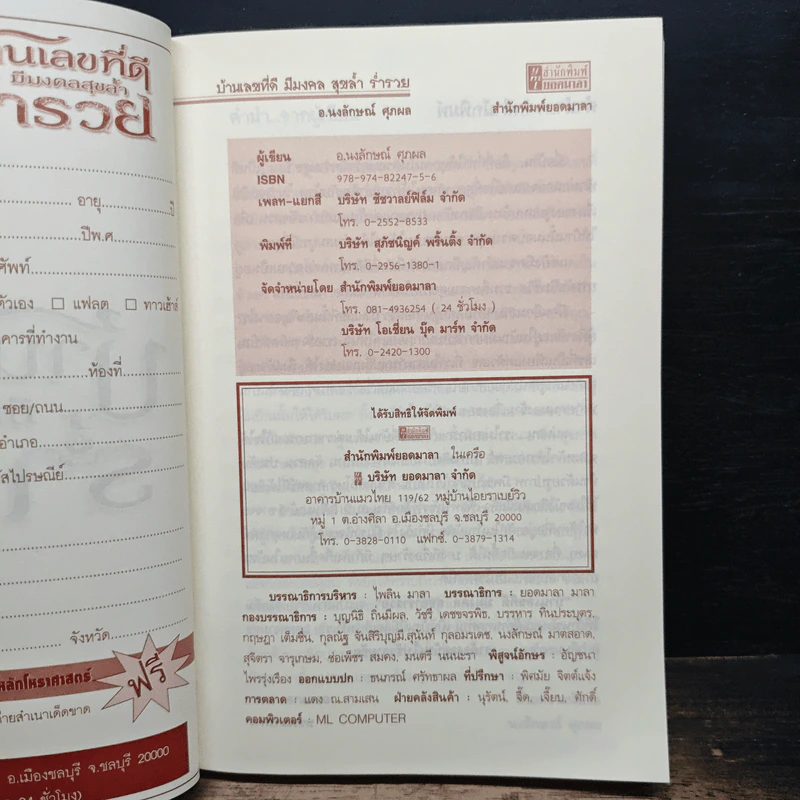 นเลขที่ดี
มีมงคลสุขล้ำ
ำรวย
อายุ ปี
ปีพ.ศ.
ศัพท์
ตัวเอง □ แฟลต □ ทาวเฮ้าส์
คารที่ทำงาน
ห้องที่
ซอย/ถนน
อำเภอ
ัสไปรษณีย์
จังหวัด
หลักโหราศาสตร์
ฟรี
่ายสำเนาเด็ดขาด
อ.เมืองชลบุรี จ.ชลบุรี 20000
24 ชั่วโมง)
บ้านเลขที่ดี มีมงคล สุขล้ำ ร่ำรวย
สำนักพิมพ์
ยอดมาลา
อ.นงลักษณ์ ศุภผล สำนักพิมพ์ยอดมาลา
ผู้เขียน อ.นงลักษณ์ ศุภผล
ISBN 978-974-82247-5-6
เพลท-แยกสี บริษัท ชัชวาลย์ฟิล์ม จำกัด
โทร. 0-2552-8533
พิมพ์ที่ บริษัท สุภัชนิญค์ พริ้นติ้ง จำกัด
โทร. 0-2956-1380-1
จัดจำหน่ายโดย สำนักพิมพ์ยอดมาลา
โทร. 081-4936254 ( 24 ชั่วโมง )
บริษัท โอเชี่ยน บุ๊ค มาร์ท จำกัด
โทร. 0-2420-1300
ได้รับสิทธิให้จัดพิมพ์
สำนักพิมพ์ยอดมาลา ในเครือ
บริษัท ยอดมาลา จำกัด
อาคารบ้านแมวไทย 119/62 หมู่บ้านไอยราเบย์วิว
หมู่ 1 ต.อ่างศิลา อ.เมืองชลบุรี จ.ชลบุรี 20000
โทร. 0-3828-0110 แฟกซ์. 0-3879-1314
บรรณาธิการบริหาร : ไพลิน มาลา บรรณาธิการ : ยอดมาลา มาลา
กองบรรณาธิการ : บุญนิธิ ถิ่นมีผล, วัชรี เดชขจรพิธ, บรรหาร ทินประบุตร,
กฤษฎา เต็มชื่น, กุลณัฐ จันสิริบุญมี, สุนันท์ กุลอมรเดช, นงลักษณ์ มาตสอาด,
สุจิตรา จารุเกษม, ช่อเพ็ชร สมคง, มนตรี นนนะรา พิสูจน์อักษร : อัญชนา
ไพรรุ่งเรือง ออกแบบปก : ธนภรณ์ ศรัทธาผล ที่ปรึกษา : พิศมัย จิตต์แจ้ง
การตลาด : แดง ณ.สามเสน ฝ่ายคลังสินค้า : นุรัตน์, จี๊ด, เจี๊ยบ, ศักดิ์
คอมพิวเตอร์ : ML COMPUTER